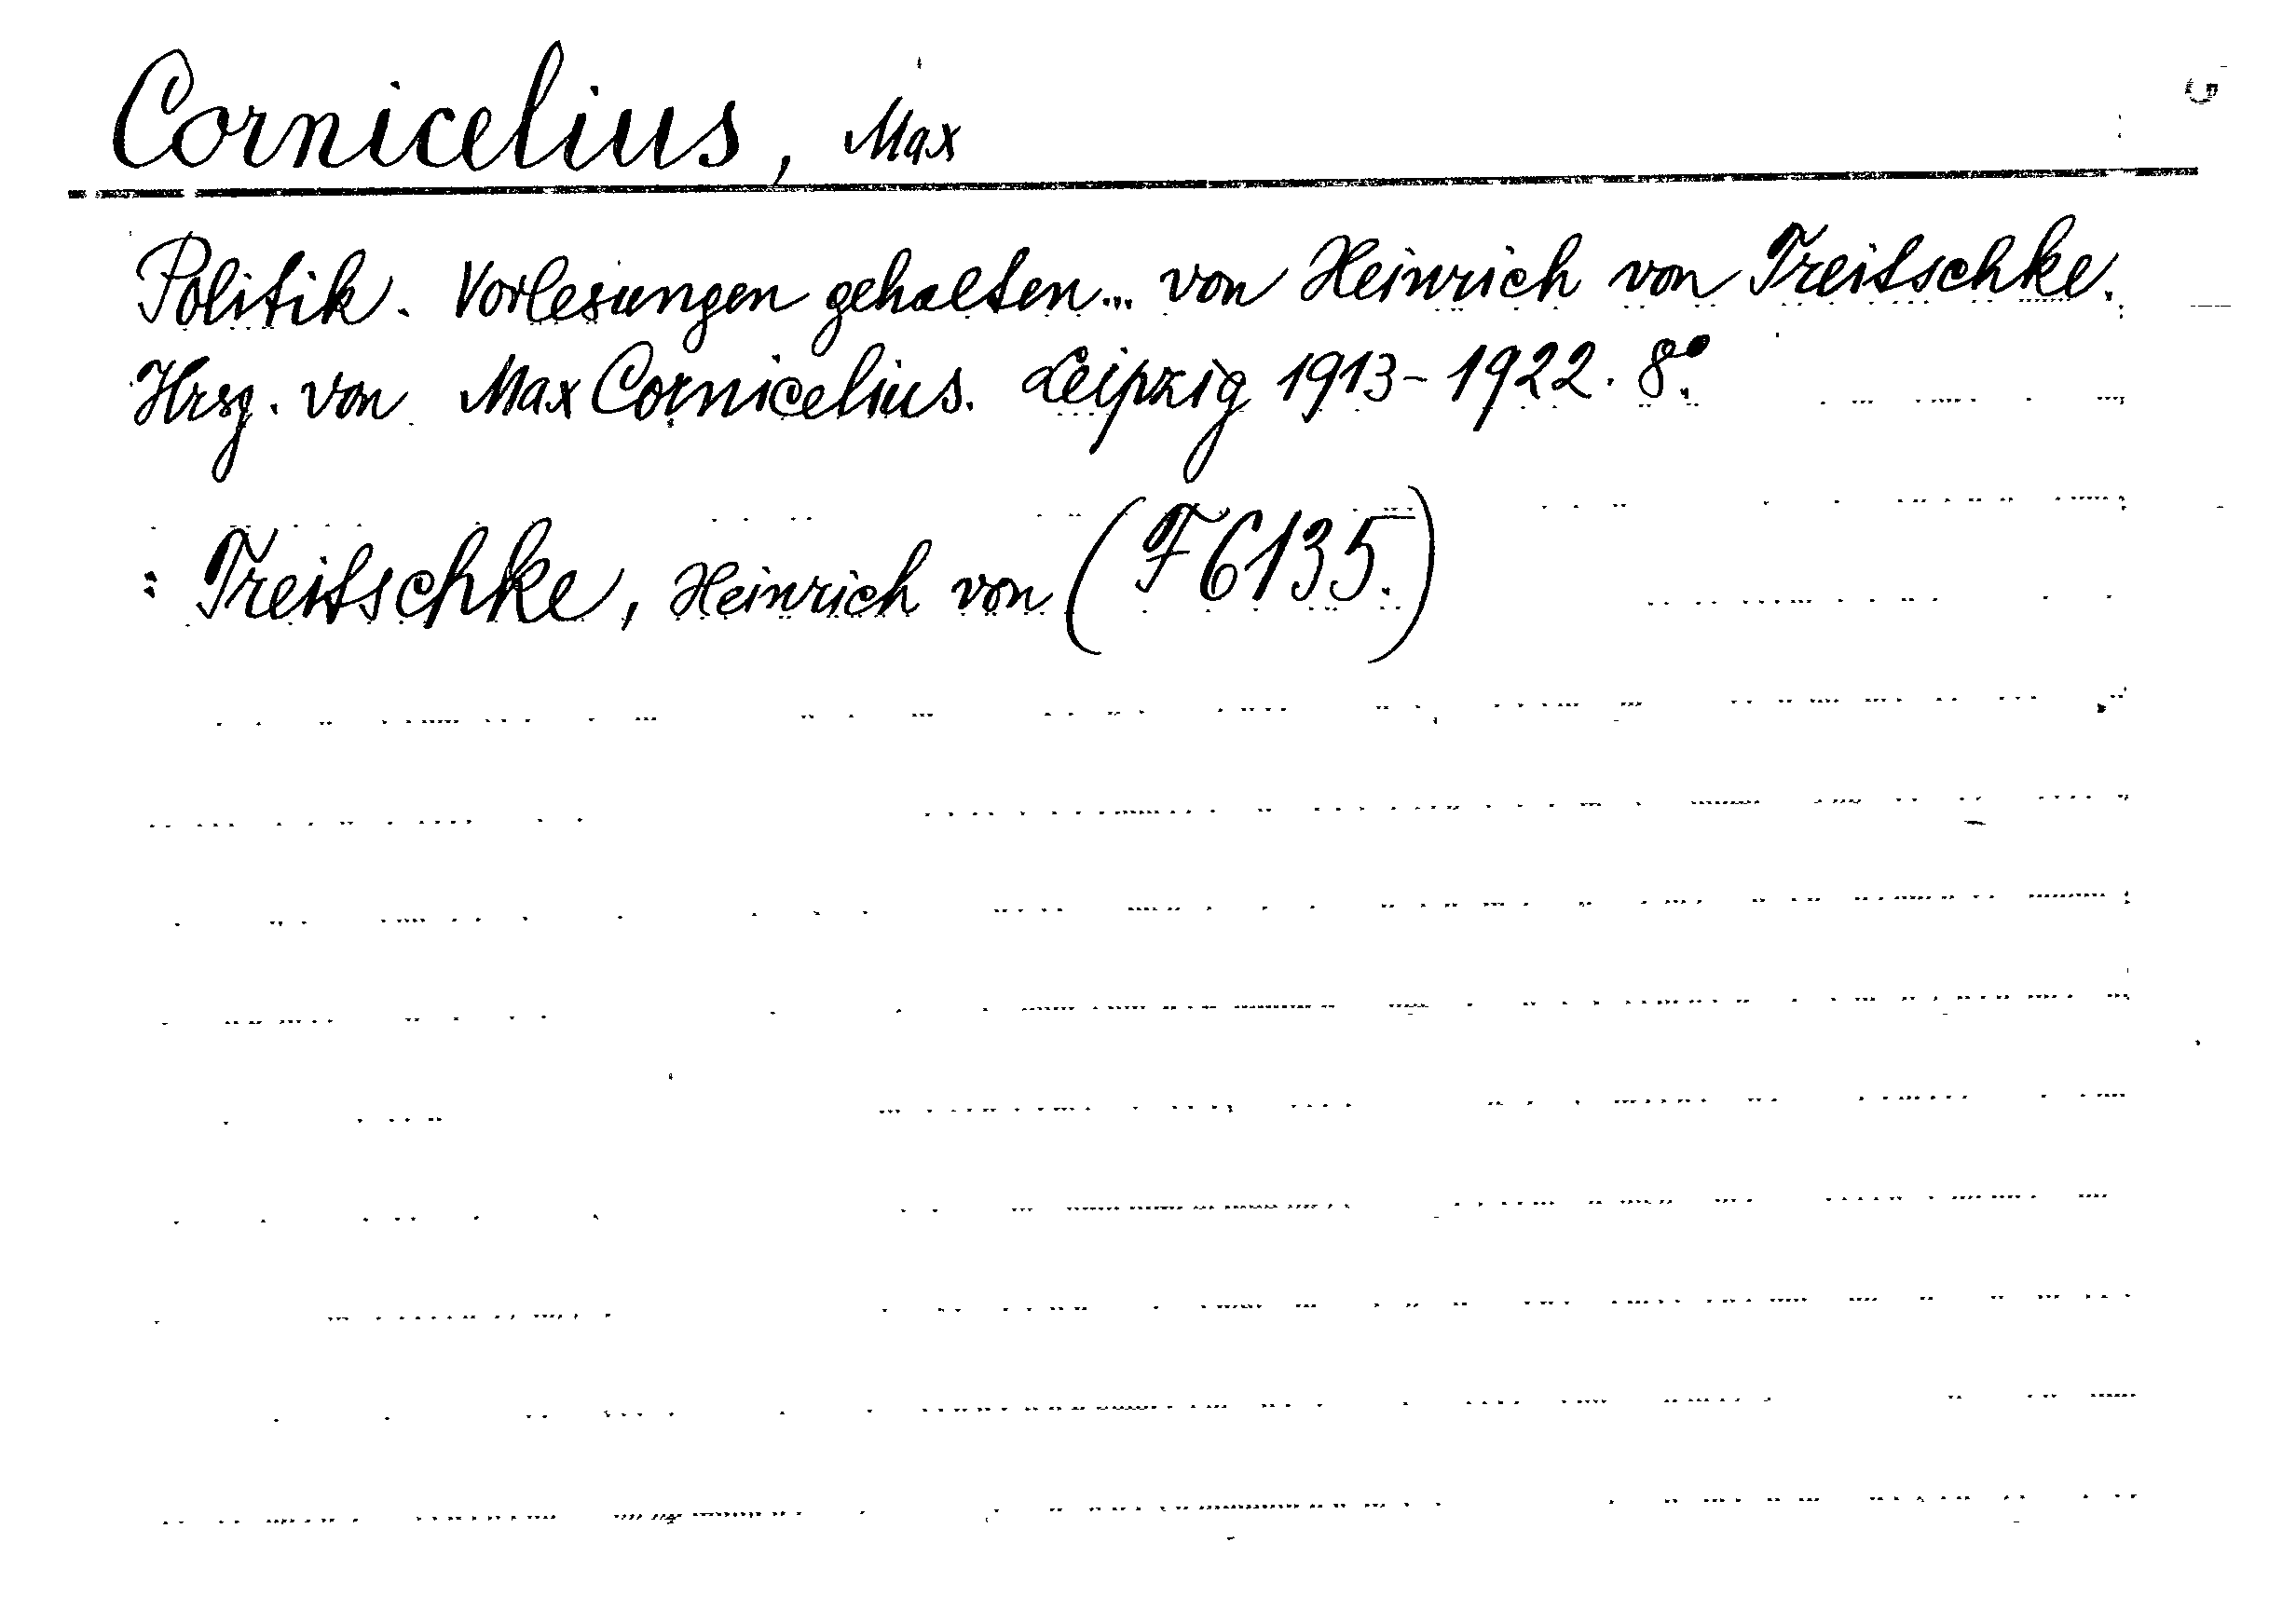 Cornicelius, Max
Politik. Vorlesungen gehalten... von Heinrich von Treitschke.
Hrsg. von Max Cornicelius. Leipzig 1913-1922. 8°.
: Treitschke, Heinrich von (F 6135.)